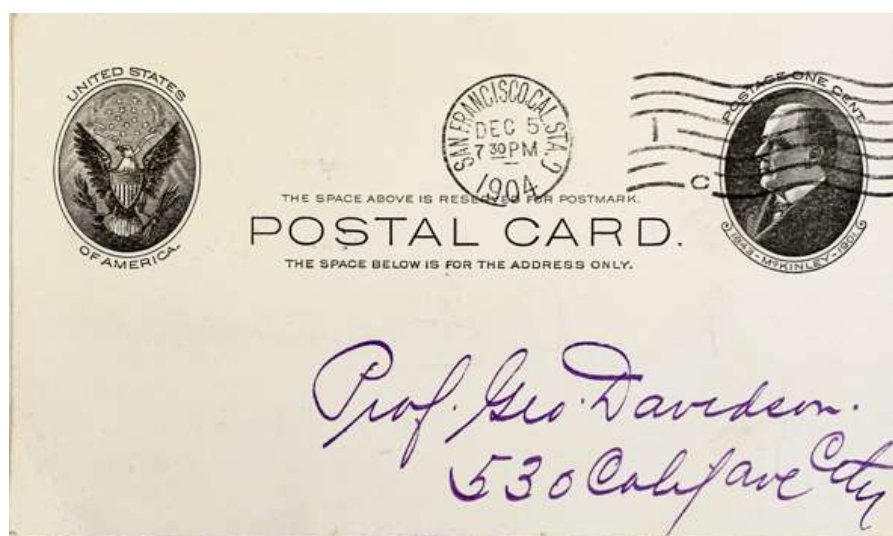 UNITED STATES
OF AMERICA.
SAN FRANCISCO, CAL. STA.
DEC 5
7 30 PM
1904
1
C
POSTAGE ONE CENT.
1843 - McKINLEY - 1901
THE SPACE ABOVE IS RESERVED FOR POSTMARK.
POSTAL CARD.
THE SPACE BELOW IS FOR THE ADDRESS ONLY.
Prof. Geo. Davidson.
530 Calif ave City